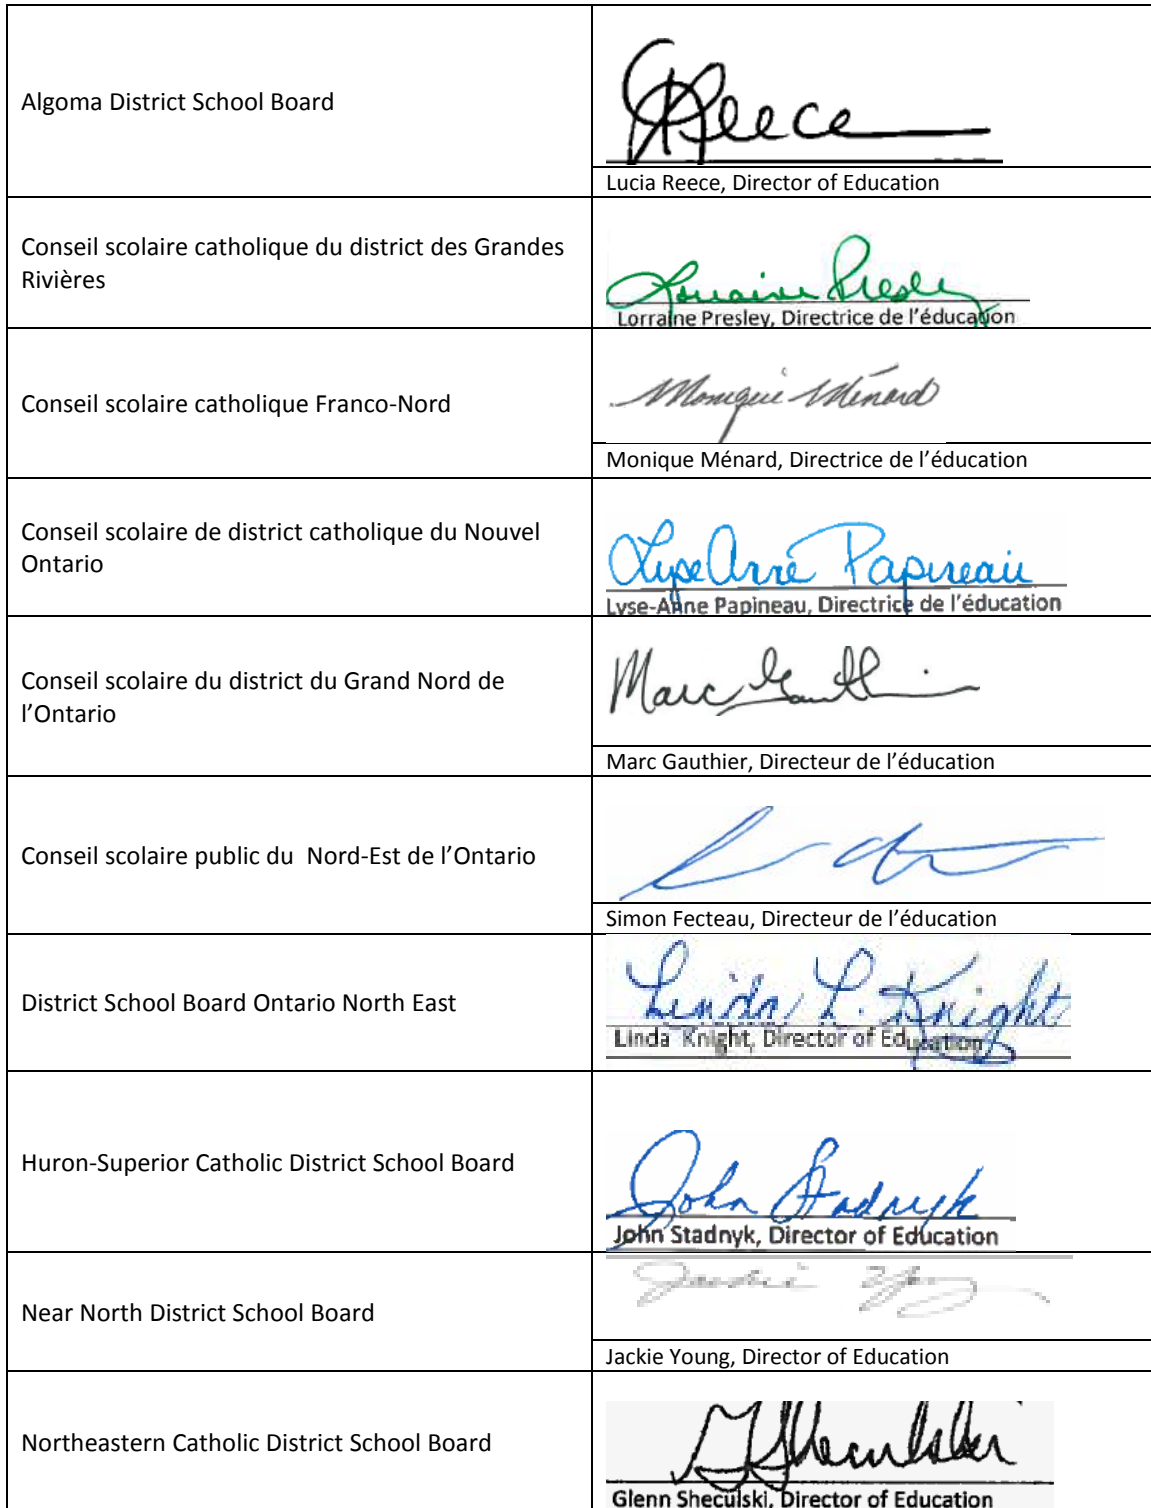 Algoma District School Board
Reece
Lucia Reece, Director of Education
Conseil scolaire catholique du district des Grandes
Rivières
Lorraine Presley
Lorraine Presley, Directrice de l'éducation
Conseil scolaire catholique Franco-Nord
Monique Ménard
Monique Ménard, Directrice de l'éducation
Conseil scolaire de district catholique du Nouvel
Ontario
Lyse Anne Papineau
Lyse-Anne Papineau, Directrice de l'éducation
Conseil scolaire du district du Grand Nord de
l'Ontario
Marc Gauthier
Marc Gauthier, Directeur de l'éducation
Conseil scolaire public du  Nord-Est de l'Ontario
Simon Fecteau, Directeur de l'éducation
District School Board Ontario North East
Linda L. Knight
Linda Knight, Director of Education
Huron-Superior Catholic District School Board
John Stadnyk
John Stadnyk, Director of Education
Near North District School Board
Jackie Young
Jackie Young, Director of Education
Northeastern Catholic District School Board
G Sheculski
Glenn Sheculski, Director of Education